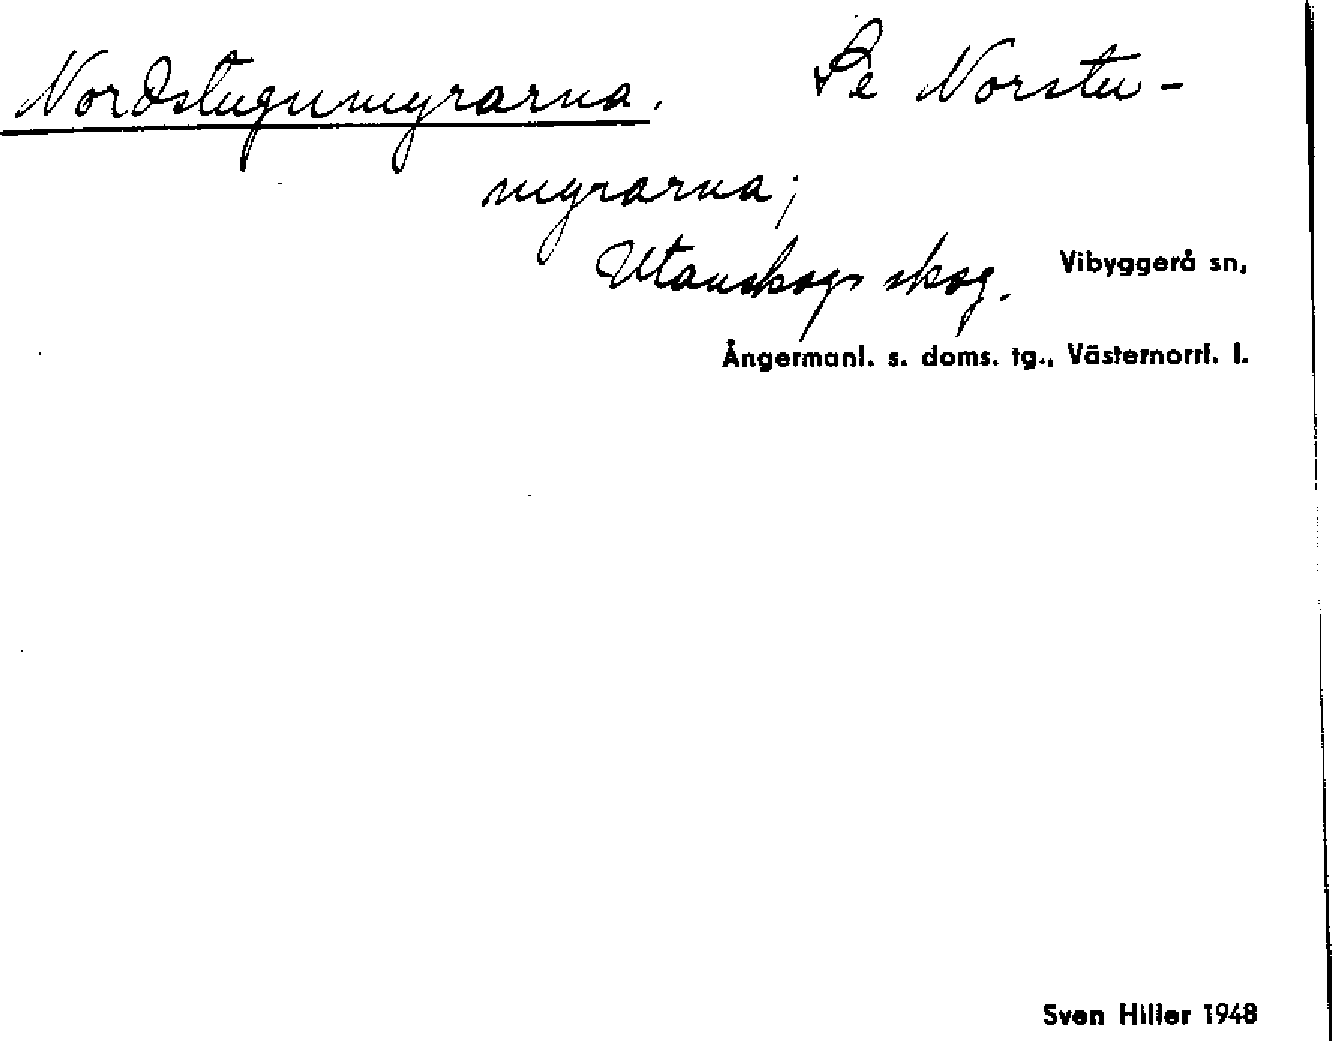 Nordstugumyrarna. Se Norstu-
myrarna;
Utanskogs skog. Vibyggerå sn,
Ångermanl. s. doms. tg., Västernorrl. l.
Sven Hiller 1948